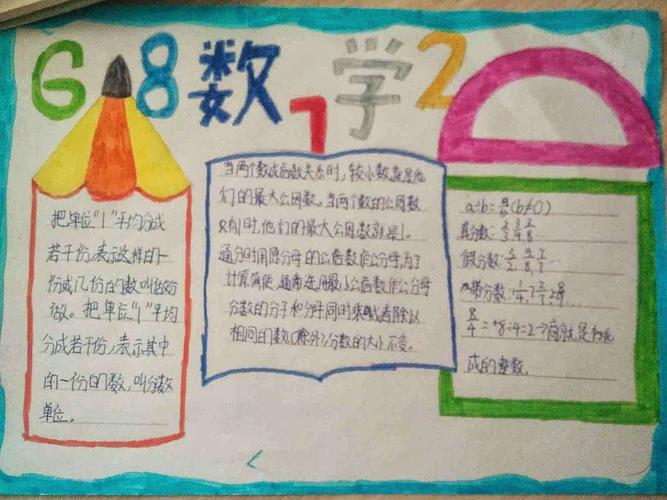 6 8 数 1 学 2
把单位“1”平均分成
若干份,表示这样的一
份或几份的数叫做分
做。把单位“1”平均
分成若干份,表示其中
的一份的数,叫分数
单位。
当两个数成倍数关系时,较小数就是他
们的最大公因数。当两个数的公因数
只有1时,他们的最大公因数就是1。
通分时用原分母的公倍数作公分母,为了
计算简便,通常选用最小公倍数作公分母
分数的分子和分母同时乘或者除以
相同的数(0除外),分数的大小不变。
a÷b=a/b(b≠0)
真分数:
假分数:
带分数:
8/4=8÷4=2→商就是
成的整数。